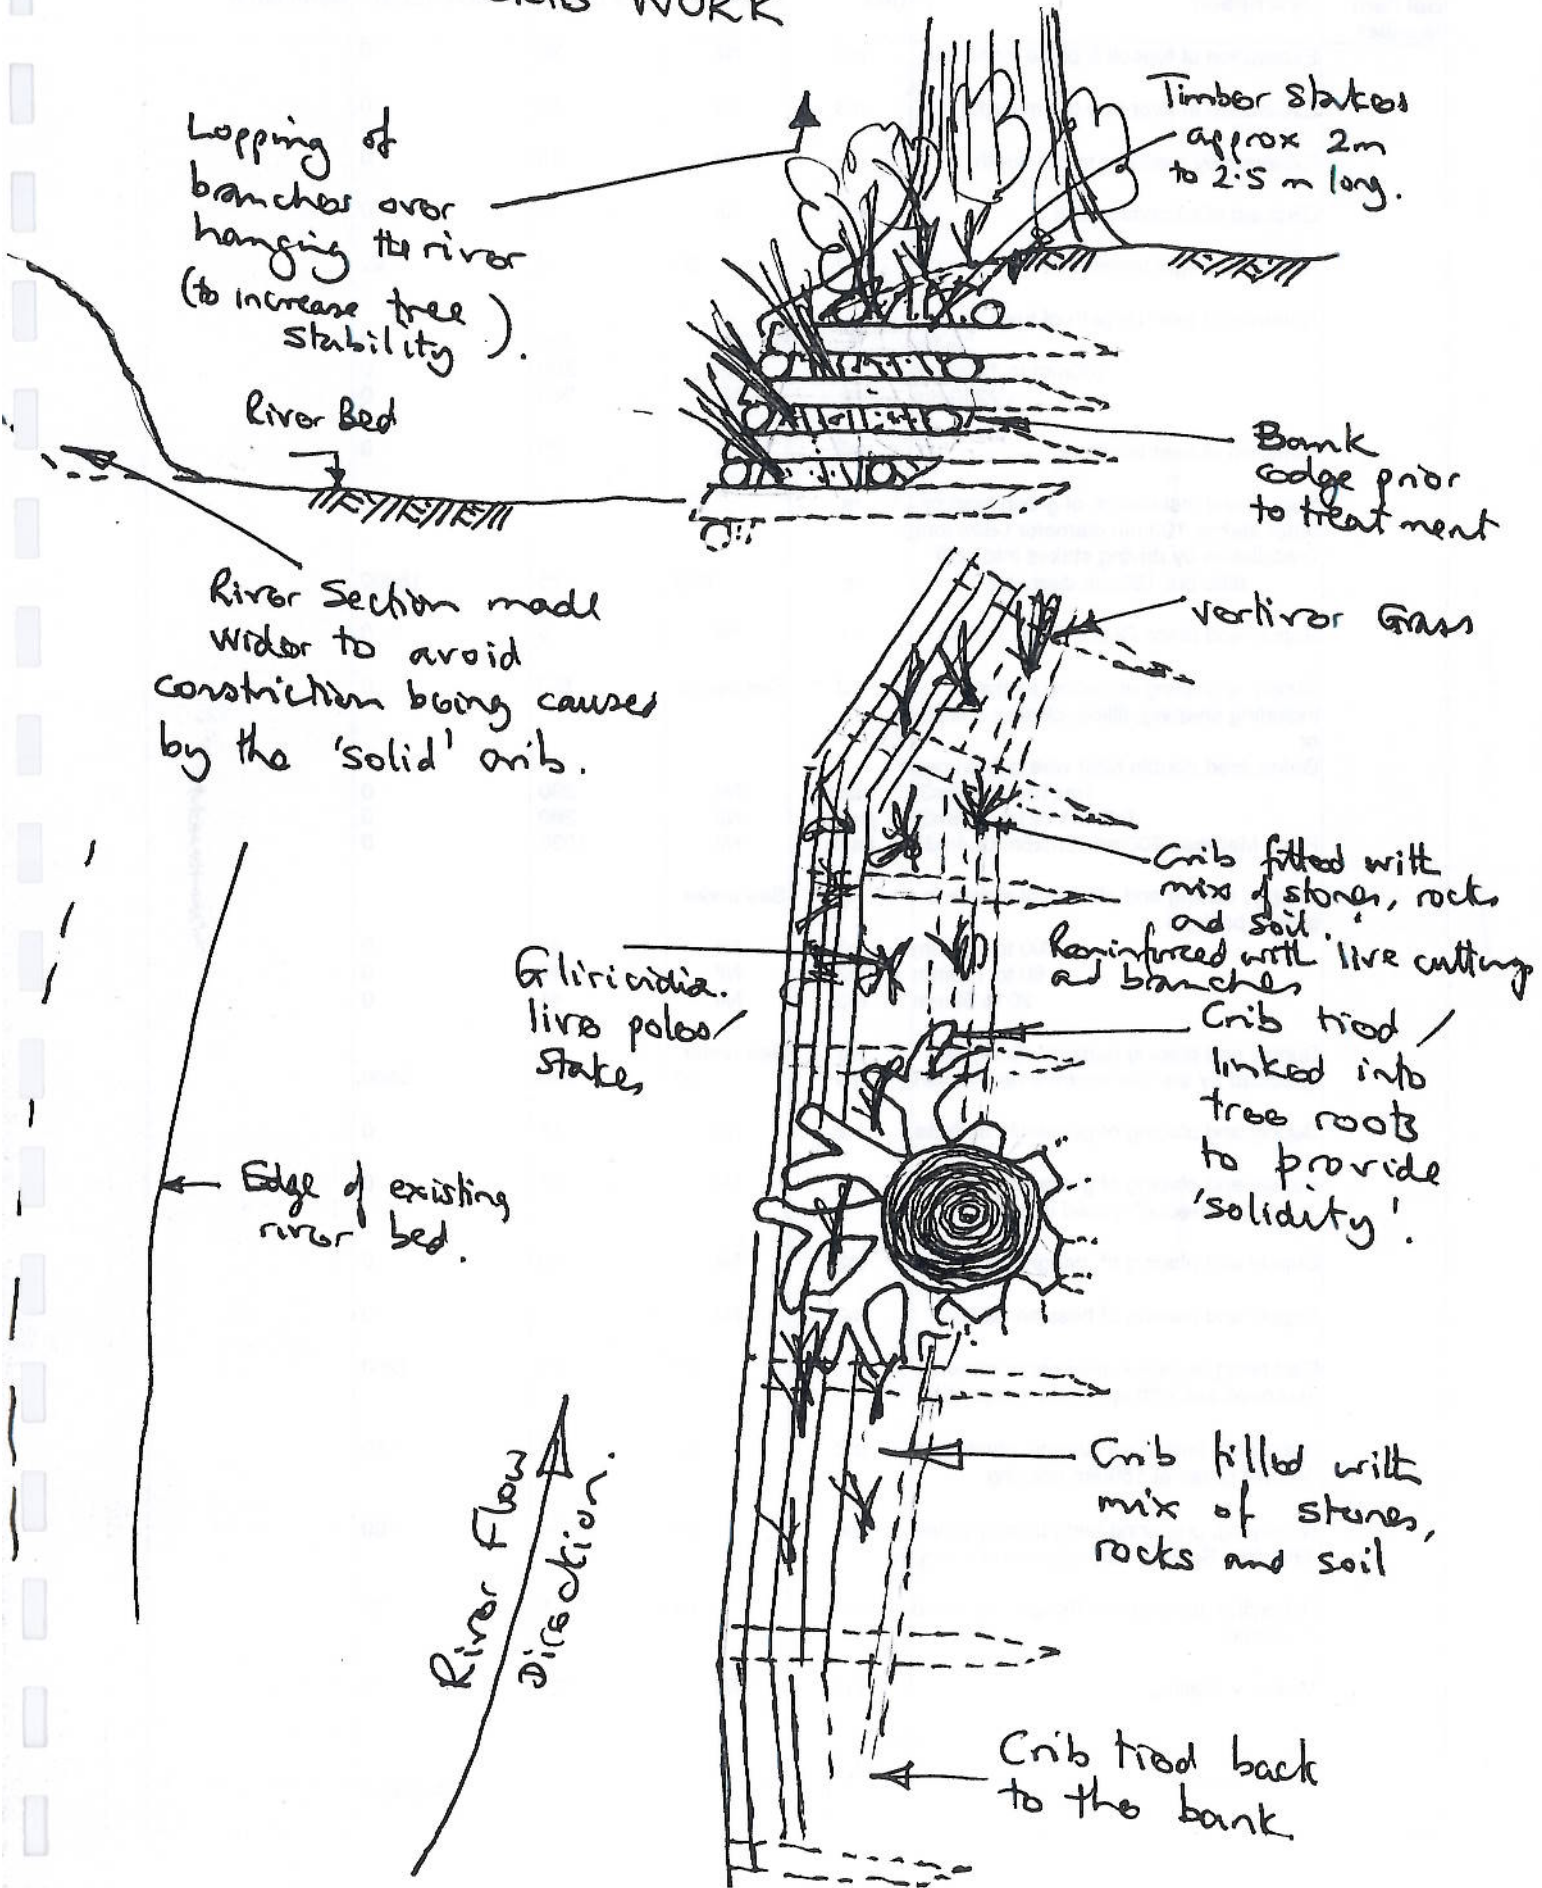 CRIB WORK
Lopping of
branches over
hanging the river
(to increase tree
stability).
Timber Stakes
approx 2m
to 2.5 m long.
River Bed
Bank
edge prior
to treatment
River Section made
wider to avoid
constriction being caused
by the 'solid' crib.
Vertiver Grass
Crib filled with
mix of stones, rocks
and soil.
Reminforced with live cuttings
and branches
Gliricidia.
live poles/
stakes
Crib tied /
linked into
tree roots
to provide
'solidity'.
Edge of existing
river bed.
River Flow
Direction.
Crib filled with
mix of stones,
rocks and soil
Crib tied back
to the bank